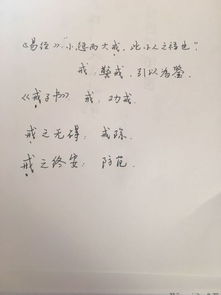 《易经》“小惩而大戒,此小人之福也”
戒,鉴戒,引以为鉴
《戒子书》 戒,劝戒
戒之无碍: 戒除.
戒之终害: 防范.